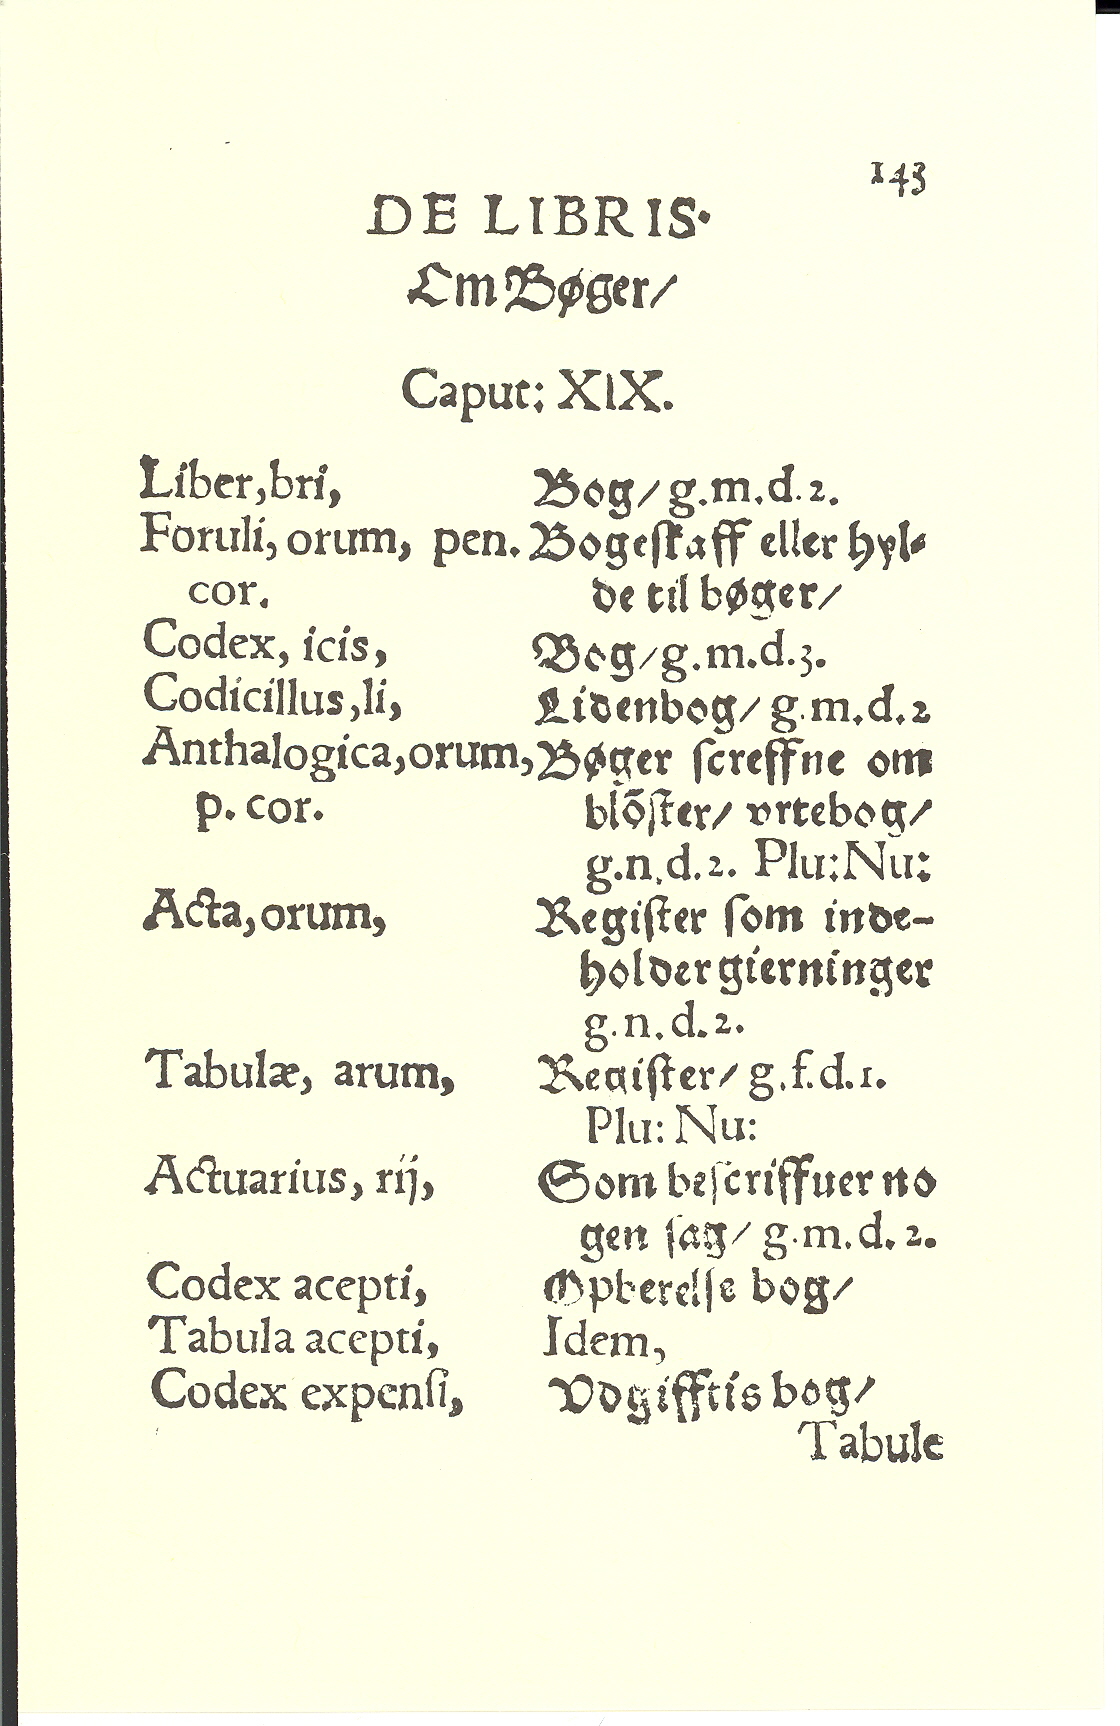 143
DE LIBRIS.
Om Bøger/
Caput: XIX.
Liber, bri, Bog/ g.m.d.2.
Foruli, orum, pen. Bogeſkaff eller hyl⸗
cor. de til bøger/
Codex, icis, Bog/ g.m.d.3.
Codicillus, li, Lidenbog/ g.m.d.2
Anthalogica, orum, Bøger ſcreffne om
p. cor. blōſter/ vrtebog/
g.n.d.2. Plu: Nu:
Acta, orum, Regiſter ſom inde-
holder gierninger
g.n.d.2.
Tabulæ, arum, Regiſter/ g.f.d.1.
Plu: Nu:
Actuarius, rij, Som beſcriffuer no
gen ſag/ g.m.d.2.
Codex acepti, Opberelſe bog/
Tabula acepti, Idem,
Codex expenſi, Vdgifftis bog/
Tabule